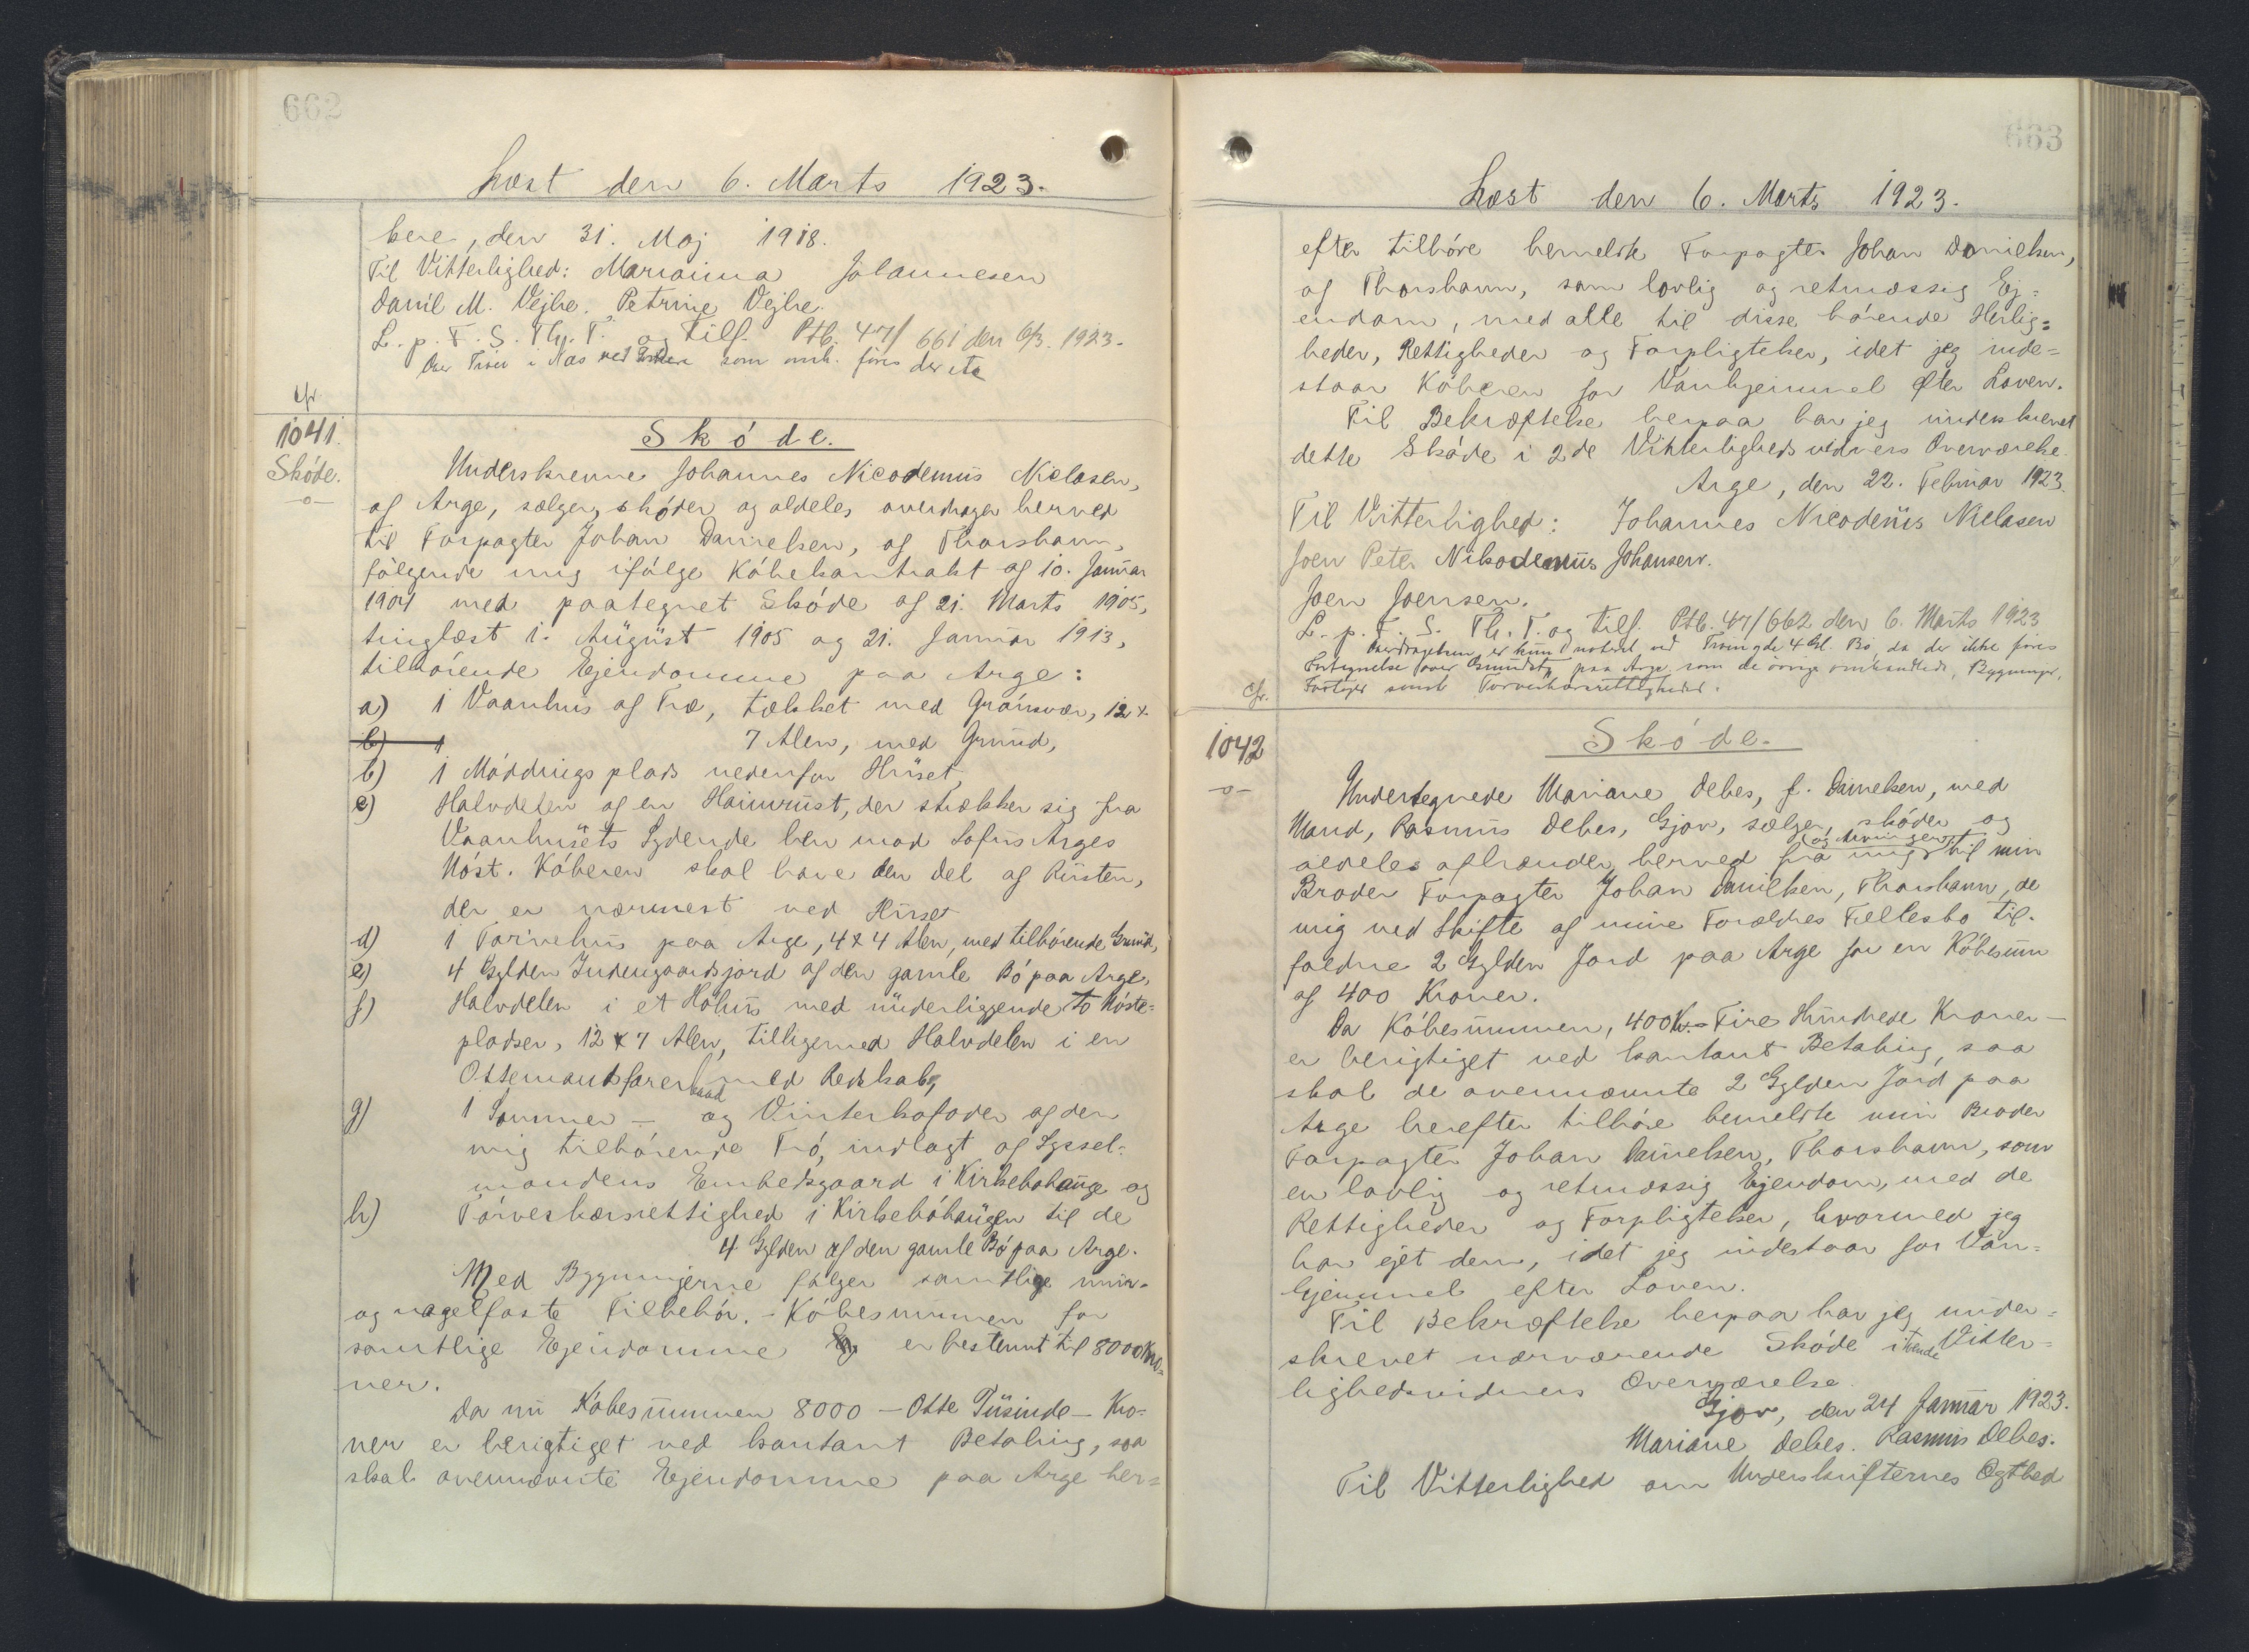 662
Læst den 6. Marts 1923.
bere, den 31. Maj 1918.
Til Vitterlighed: Mariaima Johannesen
Danil M. Vejhe. Petrine Vejhe.
L. p. F. S. Th. T. og Tilf. Ptb. 47/661 den 6/3. 1923.
som føres der
cfr.
1041.
Skóde.
-o-
Skóde.
Underskrevne Johannes Nicodemus Niclasen,
af Arge, sælger, skóder og aldeles overdrager herved
til Forpagter Johan Danielsen, af Thorshavn,
fólgende mig ifólge Kóbekontrakt af 10. Januar
1904 med paategnet Skóde af 21. Marts 1905,
tinglæst 1. August 1905 og 21. Januar 1913,
tilhórende Ejendomme paa Arge:
a) 1 Vaanhus af Træ, tækket med Grónsvær, 12 x
b) 1 7 Alen, med Grund,
b) 1 Móddingsplads nedenfor Huset,
c) Halvdelen af en Haimrust, der strækker sig fra
Vaanhusets Sydende hen mod Sofus Arges
Nóst. Kóberen skal have den Del af Rusten,
der er nærmest ved Huset
d) 1 Torvehus paa Arge, 4 x 4 Alen, med tilhórende Grund,
e) 4 Gylden Indengaardsjord af den gamle Bó paa Arge,
f) Halvdelen i et Hóhus med underliggende to Nóste=
pladser, 12 x 7 Alen, tilligemed Halvdelen i en
Ottemandsfarerbaad med Redskab,
g) 1 Sommer- og Vinterkofoder af den
mig tilhórende Tró, indlagt af Syssel=
mandens Embedsgaard i Kirkebóhauge og
h) Tórveskærsrettighed i Kirkebóhaugen til de
4 Gylden af den gamle Bó paa Arge.
Med Bygningerne fólger samtlige mur-
og nagelfaste Tilbehór. - Kóbesummen for
samtlige Ejendomme er bestemt til 8000 Kro=
ner.
Da nu Kóbesummen 8000 - Otte Tusinde - Kro=
ner er berigtiget ved kontant Betaling, saa
skal ovennævnte Ejendomme paa Arge her=
663
Læst den 6. Marts 1923.
efter tilhóre bemeldte Forpagter Johan Danielsen,
af Thorshavn, som lovlig og retmæssig Ej=
endom, med alle til disse hórende Herlig=
heder, Rettigheder og Forpligtelser, idet jeg inde=
staar Kóberen for Vanhjemmel efter Loven.
Til Bekræftelse herpaa har jeg underskrevet
dette Skóde i 2de Vitterlighedsvidners Overværelse.
Arge, den 22. Februar 1923.
Til Vitterlighed: Johannes Nicodemus Niclasen
Joen Peter Nikodemus Johansen.
Joen Joensen.
L. p. F. S. Th. T. og Tilf. Ptb. 47/662 den 6. Marts 1923
Overdragelsen er kun noteret ved de 4 Gl. Bó, da der ikke føres
Fortegnelse over Grundstk. paa Arge som de øvrige omhandlede, Bygninger,
Fartøjer samt Torveskærsrettigheder.
cfr.
1042
-o-
Skóde.
Undertegnede Mariane Debes, f. Danielsen, med
Mand, Rasmus Debes, Gjov, sælger, skóder og
aldeles afhænder herved fra mig og Arvinger til min
Broder Forpagter Johan Danielsen, Thorshavn, de
mig ved Skifte af mine Forældres Fællesbo til-
faldne 2 Gylden Jord paa Arge for en Kóbesum
af 400 Kroner.
Da Kóbesummen, 400 Kr. - Fire Hundrede Kroner -
er berigtiget ved kontant Betaling, saa
skal de ovennævnte 2 Gylden Jord paa
Arge herefter tilhóre bemeldte min Broder
Forpagter Johan Danielsen, Thorshavn, som
en lovlig og retmæssig Ejendom, med de
Rettigheder og Forpligtelser, hvormed jeg
har ejet dem, idet jeg indestaar for Van=
hjemmel efter Loven.
Til Bekræftelse herpaa har jeg under=
skrevet nærværende Skóde i tvende Vitter=
lighedsvidners Overværelse.
Gjov, den 24 Januar 1923.
Mariane Debes. Rasmus Debes.
Til Vitterlighed om Underskrifternes Ægthed